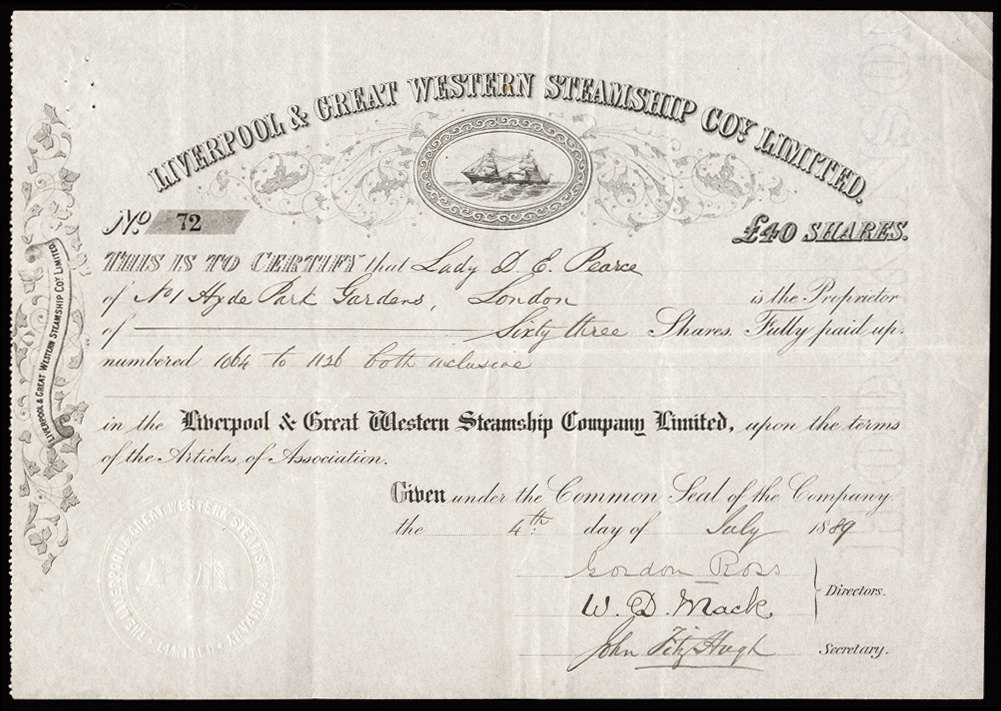 LIVERPOOL & GREAT WESTERN STEAMSHIP COY LIMITED.
No 72
£40 SHARES.
THIS IS TO CERTIFY that Lady D. E. Pearce
of No 1 Hyde Park Gardens, London is the Proprietor
of Sixty three Shares, Fully paid up,
numbered 1064 to 1126 both inclusive
in the Liverpool & Great Western Steamship Company Limited, upon the terms
of the Articles of Association.
Given under the Common Seal of the Company.
the 4th day of July 1889
Gordon Ross
W. D. Mack
Directors.
John FitzHugh Secretary.
LIVERPOOL & GREAT WESTERN STEAMSHIP COY LIMITED
THE LIVERPOOL & GREAT WESTERN STEAMSHIP COMPANY LIMITED